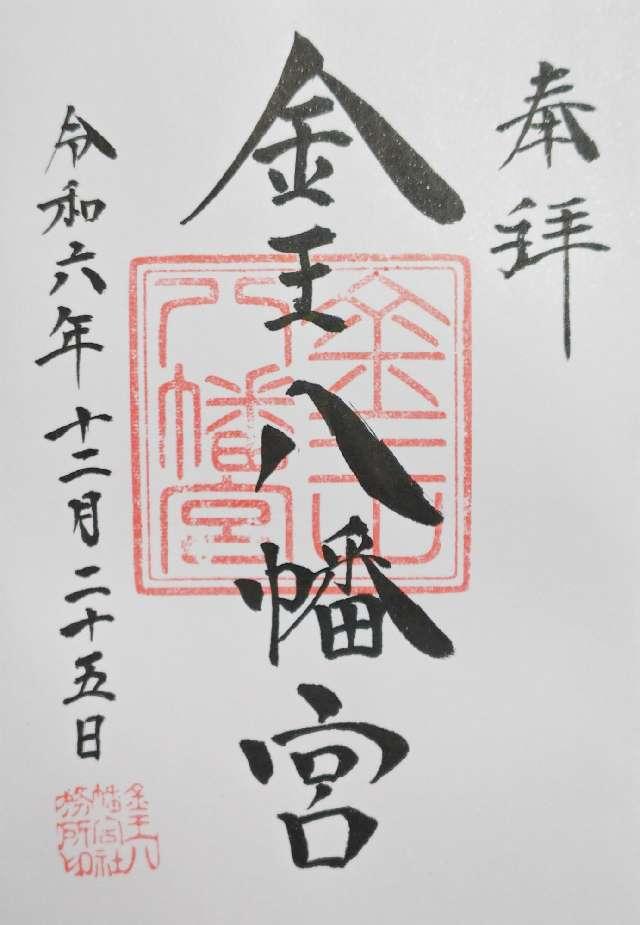 奉拝
金王八幡宮
令和六年十二月二十五日
金王八幡宮
金王八幡宮社務所印